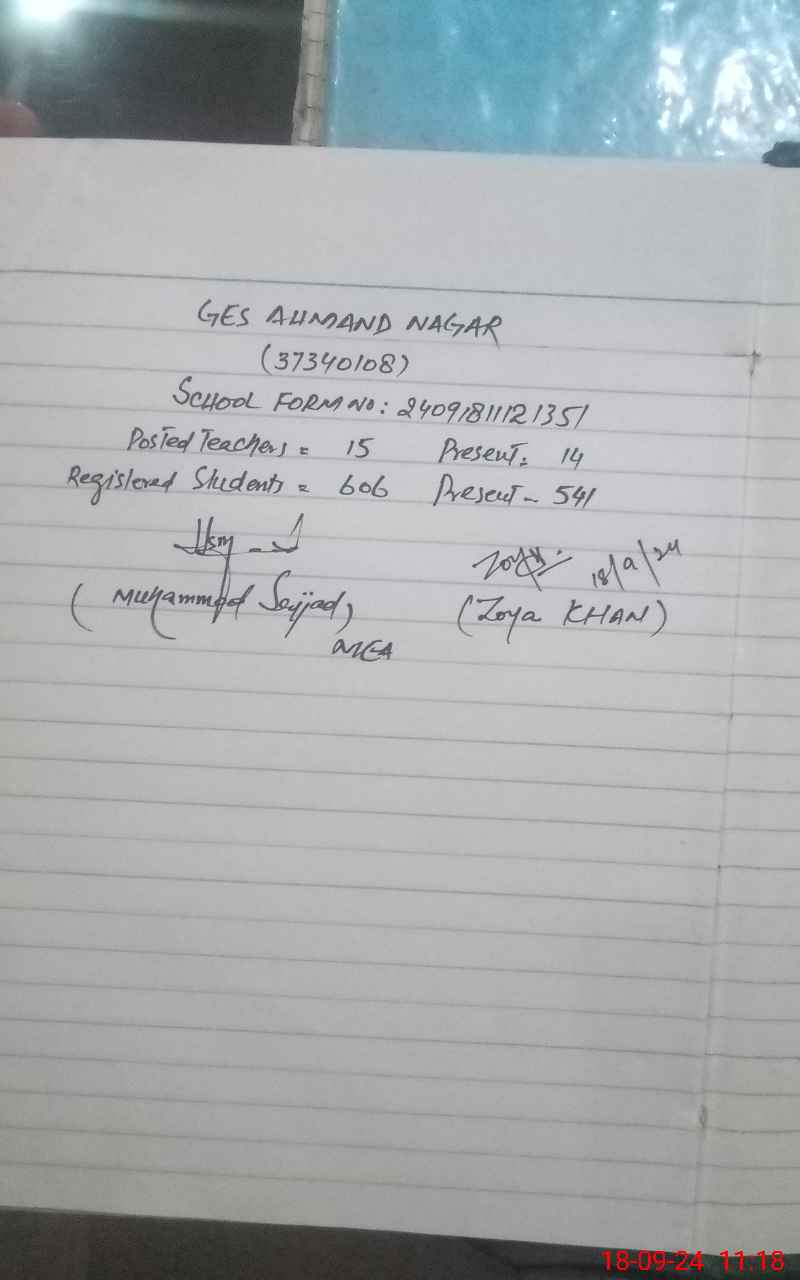 GES AHMAND NAGAR
(37340108)
SCHOOL FORM NO: 24091811121351
Posted Teachers = 15 Present: 14
Registered Students = 606 Present - 541
18/9/24
(Muhammad Sajjad) (Zoya KHAN)
MEA
18-09-24 11:18